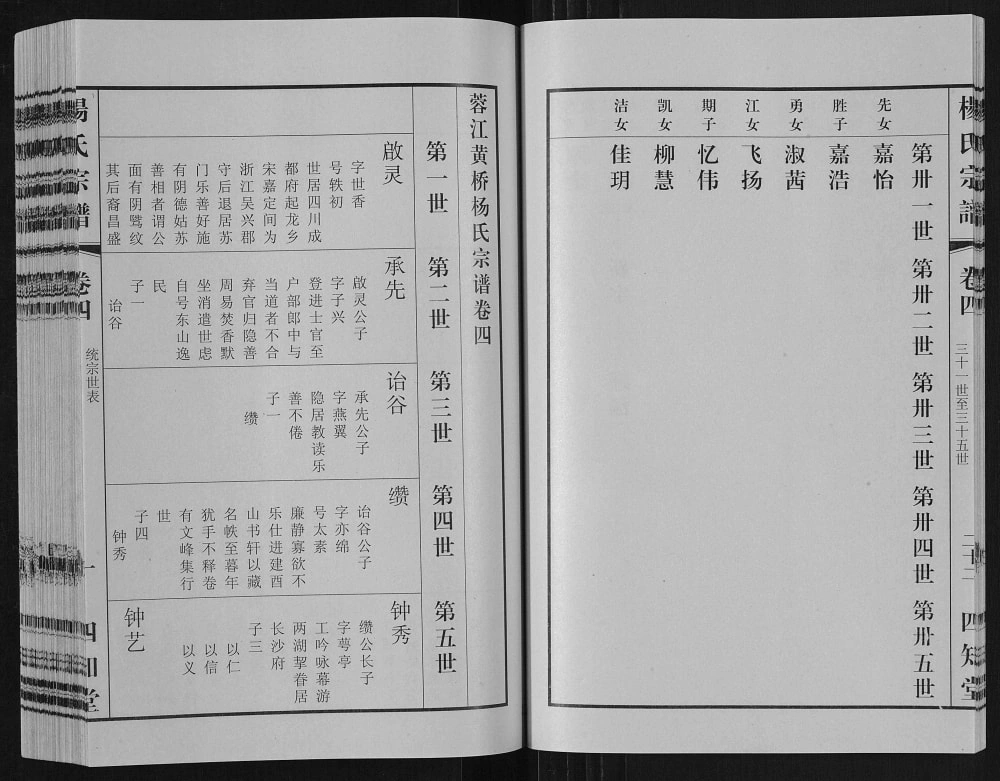 楊氏宗譜
卷四
三十一世至三十五世
二十二
四知堂
第卅一世
第卅二世
第卅三世
第卅四世
第卅五世
先女
嘉怡
胜子
嘉浩
勇女
淑茜
江女
飞扬
期子
忆伟
凯女
柳慧
洁女
佳玥
蓉江黄桥杨氏宗谱卷四
第一世
第二世
第三世
第四世
第五世
啟灵
字世香
号轶初
世居四川成
都府起龙乡
宋嘉定间为
浙江吴兴郡
守后退居苏
门乐善好施
有阴德姑苏
善相者谓公
面有阴骘纹
其后裔昌盛
承先
啟灵公子
字子兴
登进士官至
户部郎中与
当道者不合
弃官归隐善
周易焚香默
坐消遣世虑
自号东山逸
民
子一
诒谷
诒谷
承先公子
字燕翼
隐居教读乐
善不倦
子一
缵
缵
诒谷公子
字亦绵
号太素
廉静寡欲不
乐仕进建酉
山书轩以藏
名帙至暮年
犹手不释卷
有文峰集行
世
子四
钟秀
钟秀
缵公长子
字萼亭
工吟咏幕游
两湖挈眷居
长沙府
子三
以仁
以信
以义
钟艺
楊氏宗譜
卷四
统宗世表
一
四知堂